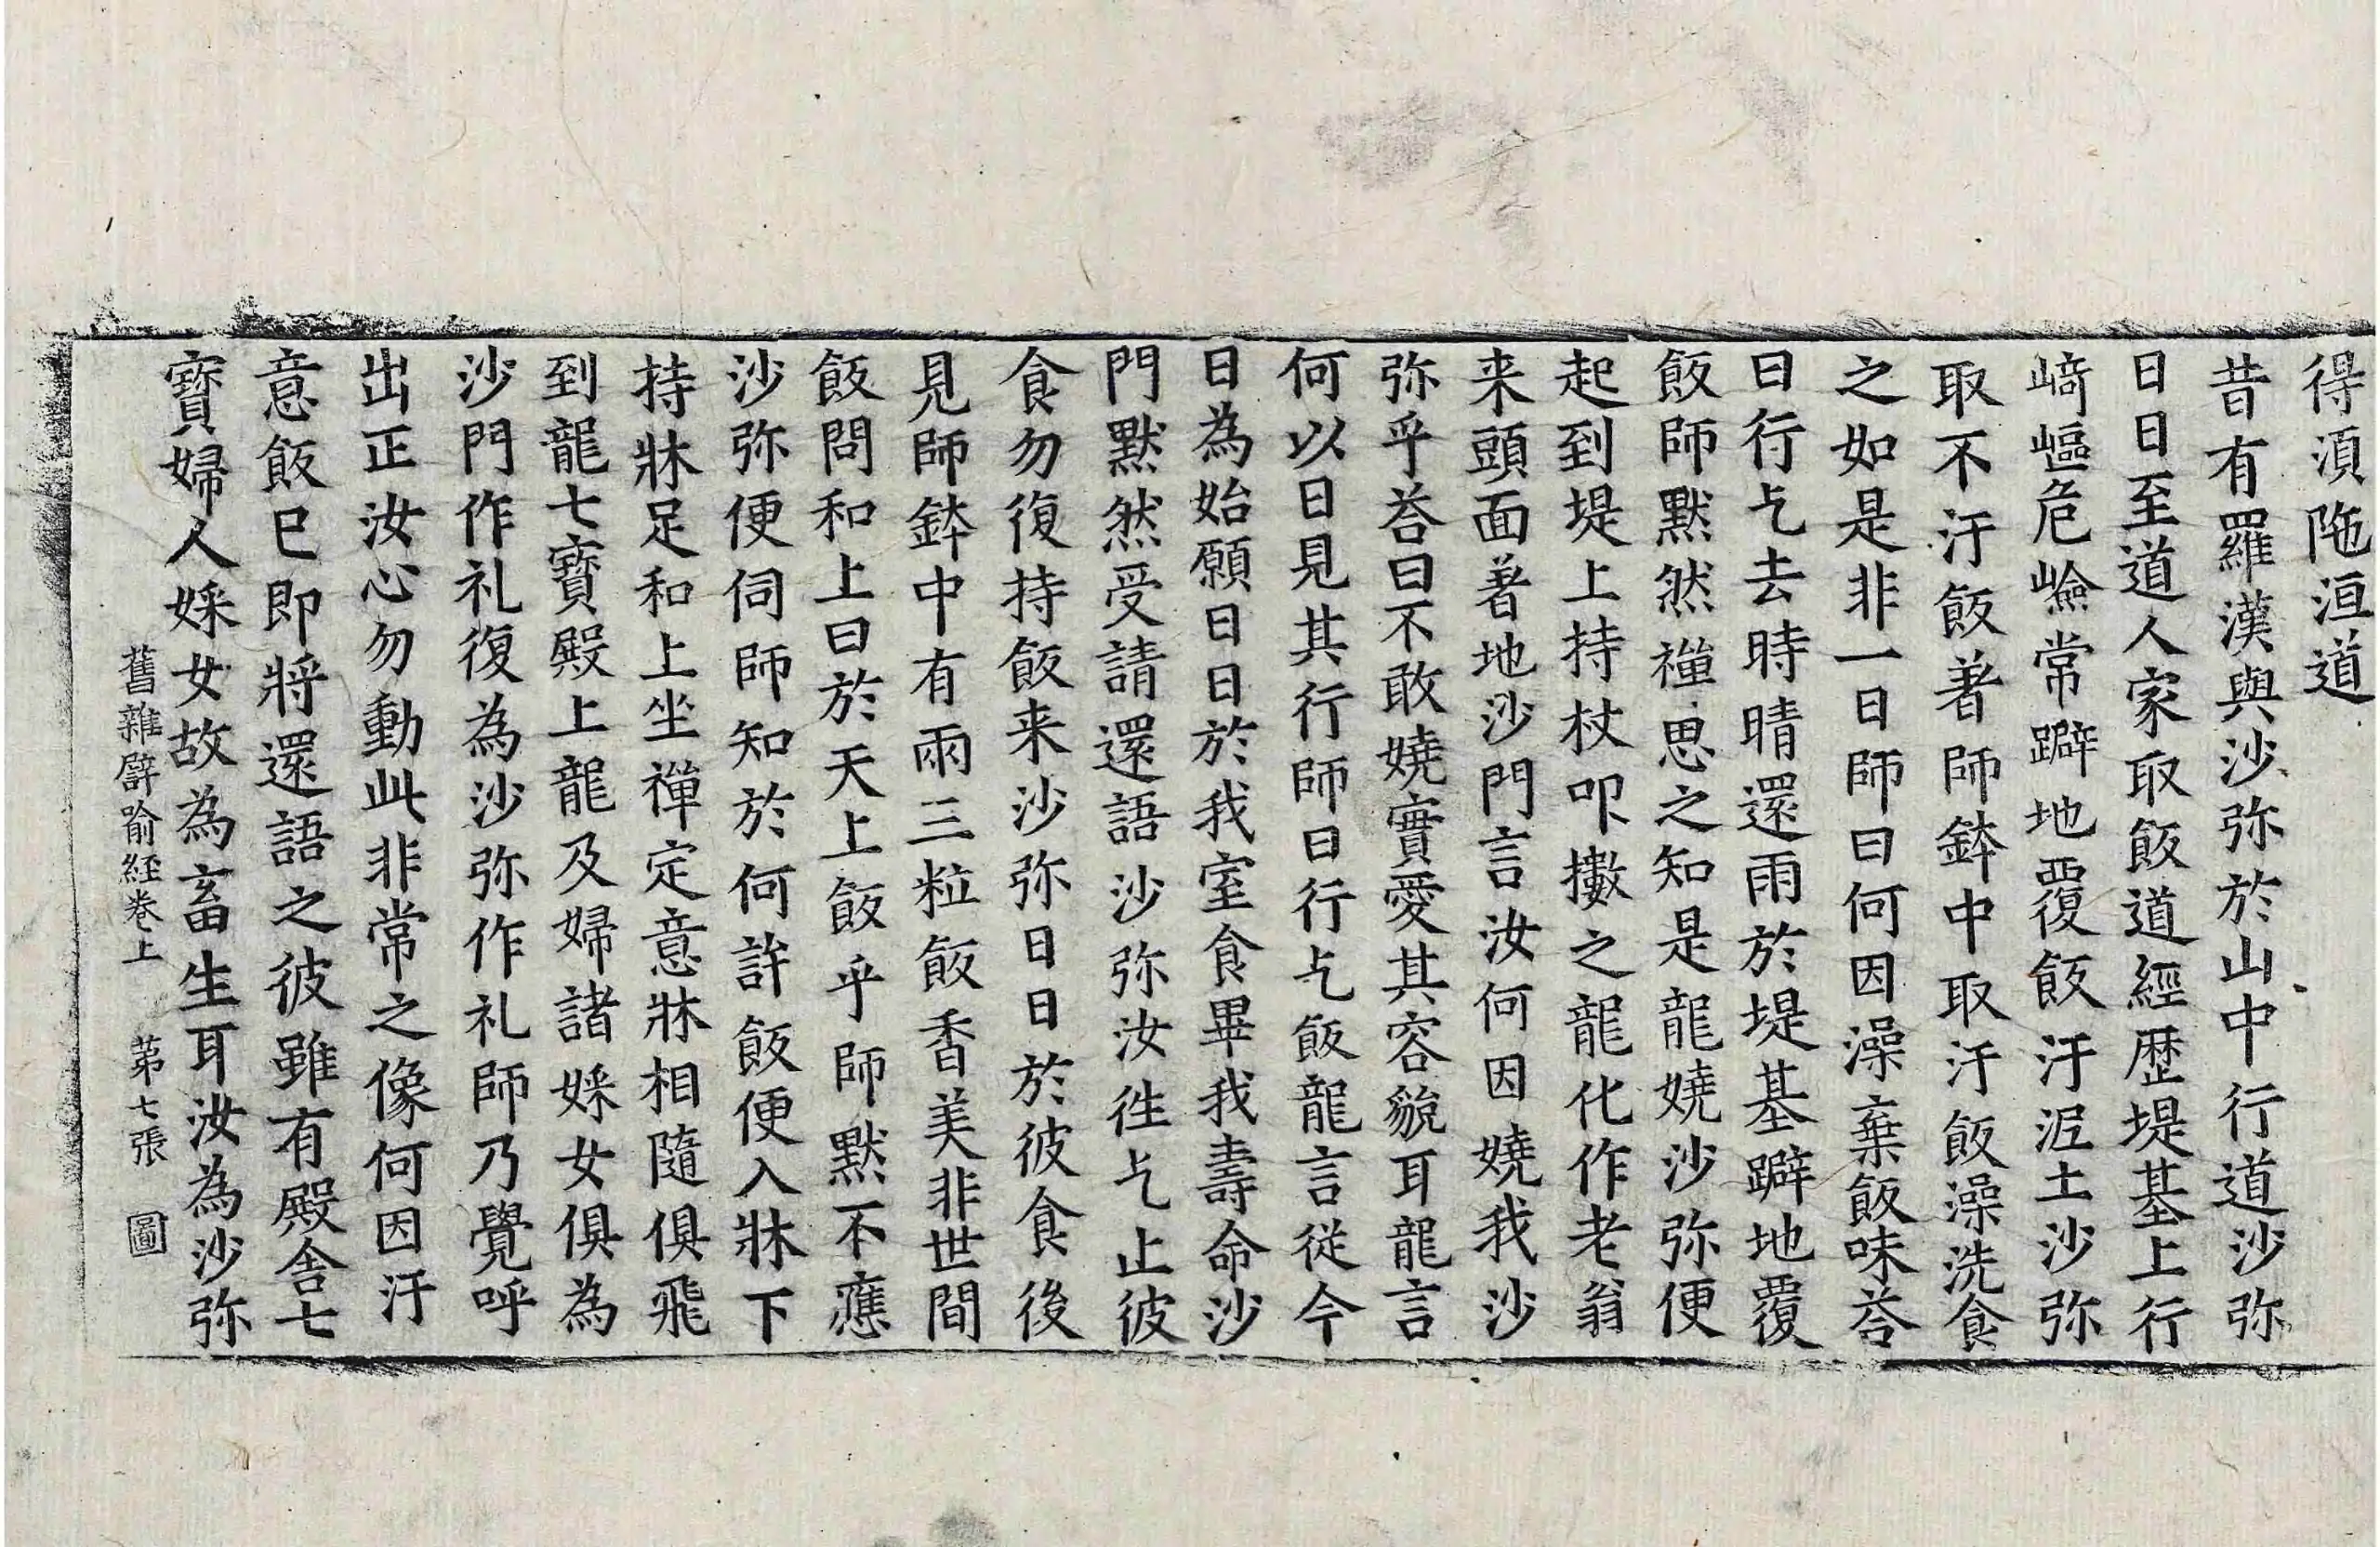 得湏陁洹道
昔有羅漢與沙弥於山中行道沙弥
日日至道人家取飯道經歷堤基上行
﨑嶇危嶮常躃地覆飯汙泥土沙弥
取不汙飯著師鉢中取汙飯澡洗食
之如是非一日師曰何因澡棄飯味荅
曰行乞去時晴還雨於堤基躃地覆
飯師默然禪思之知是龍嬈沙弥便
起到堤上持杖叩擻之龍化作老翁
来頭面著地沙門言汝何因嬈我沙
弥乎荅曰不敢嬈實愛其容貌耳龍言
何以日見其行師曰行乞飯龍言從今
日為始願日日於我室食畢我壽命沙
門默然受請還語沙弥汝徃乞止彼
食勿復持飯来沙弥日日於彼食後
見師鉢中有兩三粒飯香美非世間
飯問和上曰於天上飯乎師默不應
沙弥便伺師知於何許飯便入牀下
持牀足和上坐禪定意牀相隨俱飛
到龍七寳殿上龍及婦諸婇女俱為
沙門作礼復為沙弥作礼師乃覺呼
出正汝心勿動此非常之像何因汙
意飯已即將還語之彼雖有殿舍七
寳婦人婇女故為畜生耳汝為沙弥
舊雜譬喻經卷上　第七張　圖